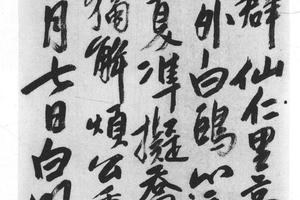 群仙仁里
外白鷗
夏準擬
獨解煩公
月七日白